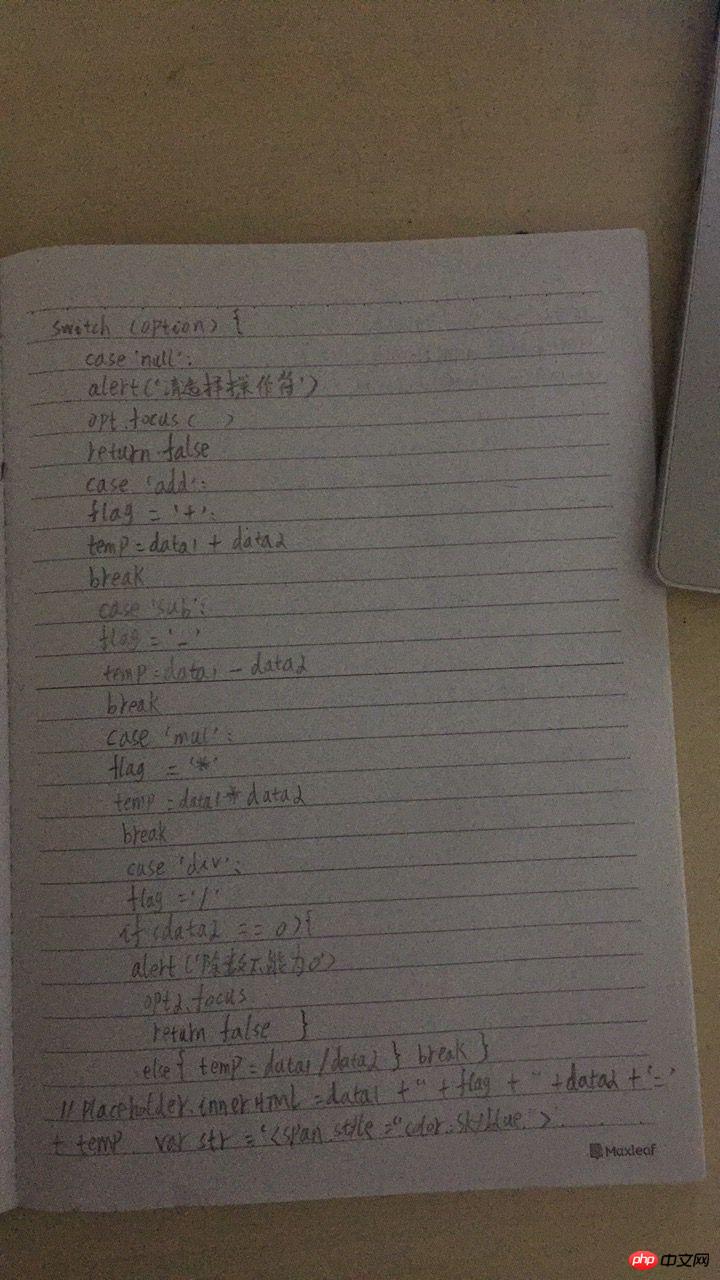 switch (option) {
case 'null':
alert('请选择操作符')
opt.focus( )
return false
case 'add':
flag = '+':
temp = data1 + data2
break
case 'sub':
flag = '-'
temp = data1 - data2
break
case 'mul':
flag = '*'
temp = data1 * data2
break
case 'div':
flag = '/'
if (data2 == 0){
alert('除数不能为0')
opt2.focus
return false }
else{ temp = data1/data2 } break }
// Placeholder.innerHtml = data1 + '' + flag + '' + data2 + '='
+ temp var str = '<span style="color:skyblue"> ......
Maxleaf
php 中文网